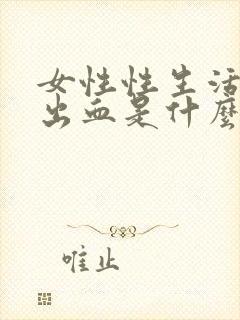 女性性生活
出血是什麼
唯止